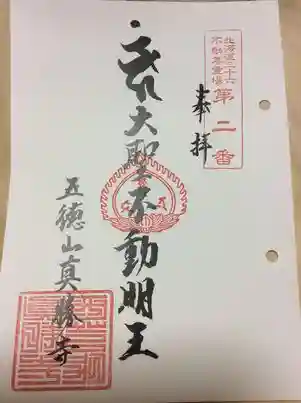 北海道三十六
不動尊霊場
第二番
奉拝
大聖不動明王
五徳山真勝寺